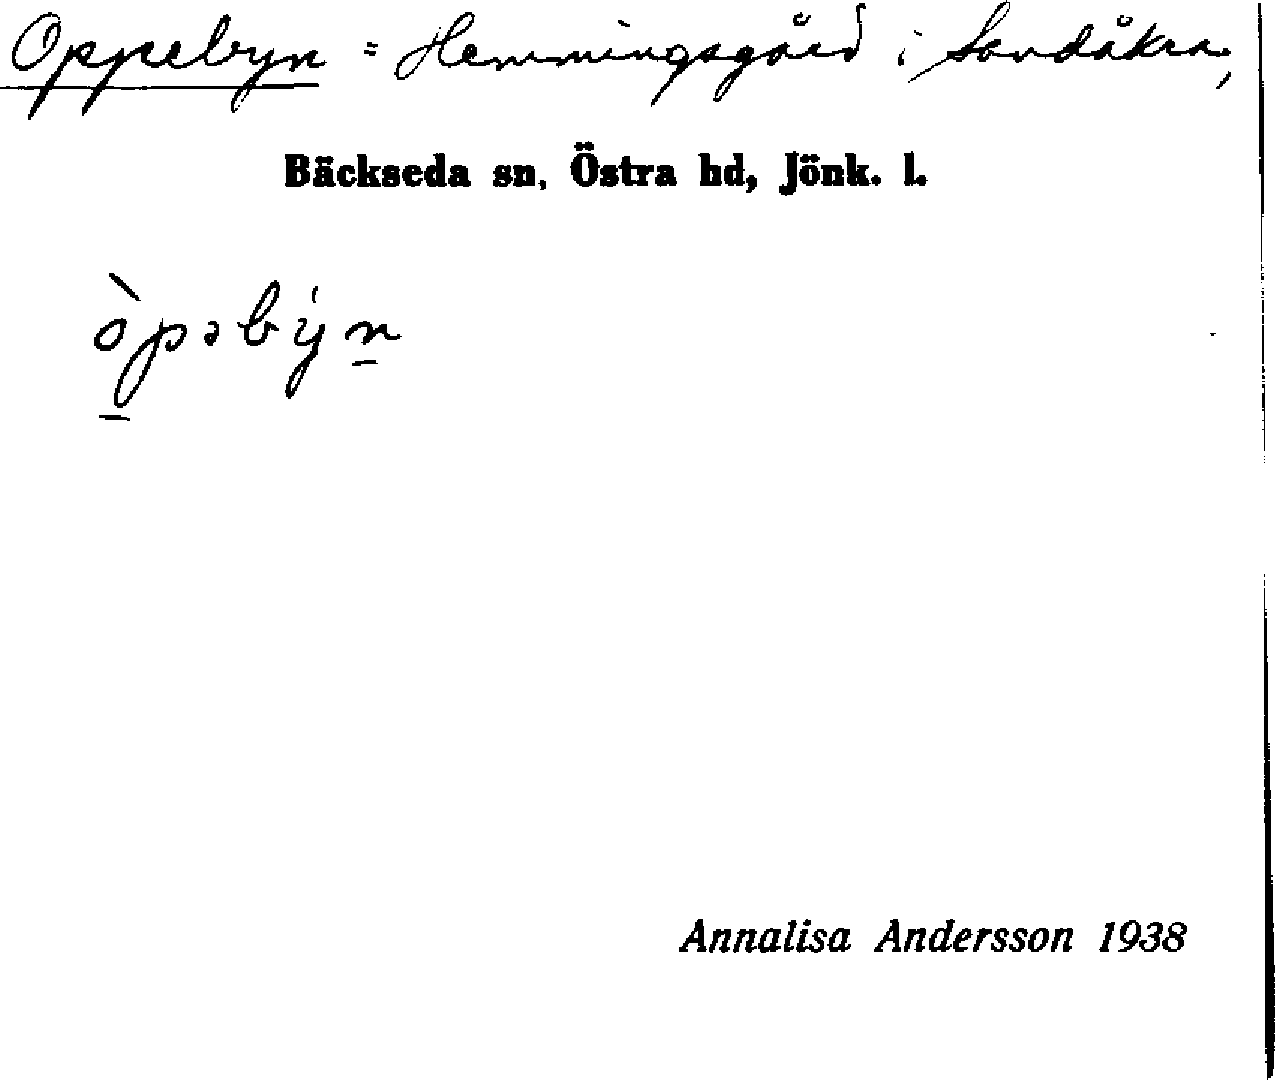 Oppebyn = Hemmingsgård i Sandåkra,
Bäckseda sn, Östra hd, Jönk. l.
òpəbýn
Annalisa Andersson 1938